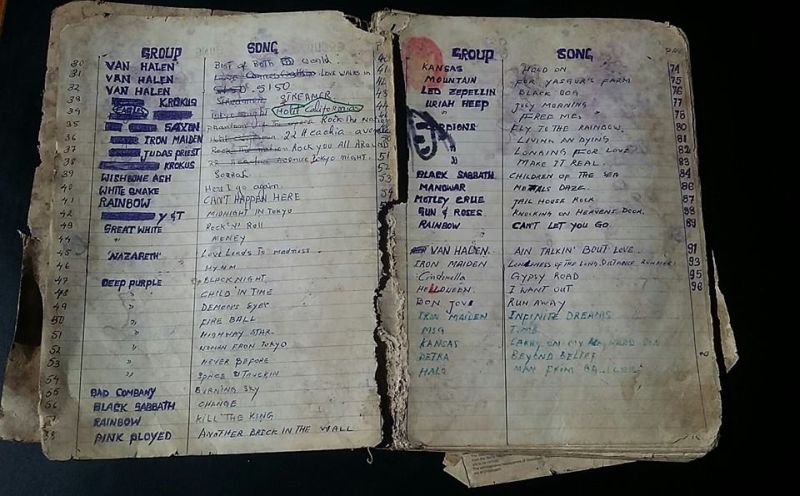 GROUP SONG
30 VAN HALEN Best of Both world
31 VAN HALEN LOVE WALKS IN
32 VAN HALEN 5150
33 KROKUS SCREAMER
34 EAGLES Hotel California
35 SAXON Rock the Nation
36 IRON MAIDEN 22 Acacia avenue
37 JUDAS PRIEST Rock you All Around
38 KROKUS Tokyo night.
39 WISHBONE ASH
40 WHITE SNAKE Here I go again
41 RAINBOW CAN'T HAPPEN HERE
42 Y & T MIDNIGHT IN TOKYO
43 GREAT WHITE ROCK'N' Roll
44 " MONEY
45 'NAZARETH' Love Leads To madness
46 " HYMN
47 DEEP PURPLE BLACK NIGHT
48 " CHILD IN TIME
49 " DEMON'S EYES
50 " FIRE BALL
51 " HIGHWAY STAR
52 " WOMAN FROM TOKYO
53 " NEVER BEFORE
54 " SPACE TRUCKIN
55 BAD COMPANY BURNING SKY
56 BLACK SABBATH CHANGE
RAINBOW KILL THE KING
58 PINK PLOYED ANOTHER BRICK IN THE WALL
GROUP SONG
KANSAS HOLD ON 74
MOUNTAIN FOR YASGUR'S FARM 75
LED ZEPELLIN BLACK DOG 76
URIAH HEEP JULY MORNING 77
FREE ME. 78
FLY TO THE RAINBOW. 80
LIVING AN DYING 81
" LONGING FOR LOVE 82
" MAKE IT REAL. 83
BLACK SABBATH CHILDREN OF THE SEA 84
MANOWAR METALS DAZE 86
MOTLEY CRUE JAIL HOUSE ROCK 87
GUN & ROSES KNOCKING ON HEAVENS DOOR. 88
RAINBOW CAN'T LET YOU GO. 89
VAN HALEN AIN TALKIN' BOUT LOVE 91
IRON MAIDEN LONELINESS OF THE LONG DISTANCE RUNNER 93
Cinderella GYPSY ROAD 95
HELLOUEEN I WANT OUT 96
BON JOVI RUN AWAY
IRON MAIDEN INFINITE DREAMS
MSG T.M.B
KANSAS CARRY ON MY
PETRA BEYOND BELIEF
HALO MAN FROM